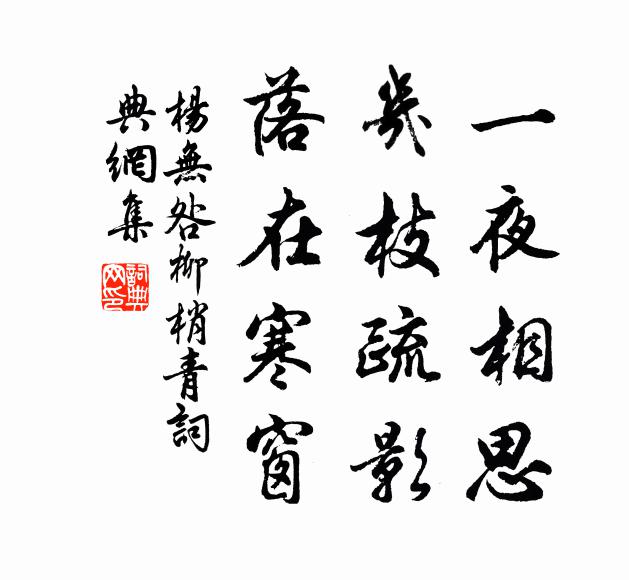 一夜相思
幾枝疏影
落在寒窗
楊無咎柳梢青詞
典網集
詞典网印